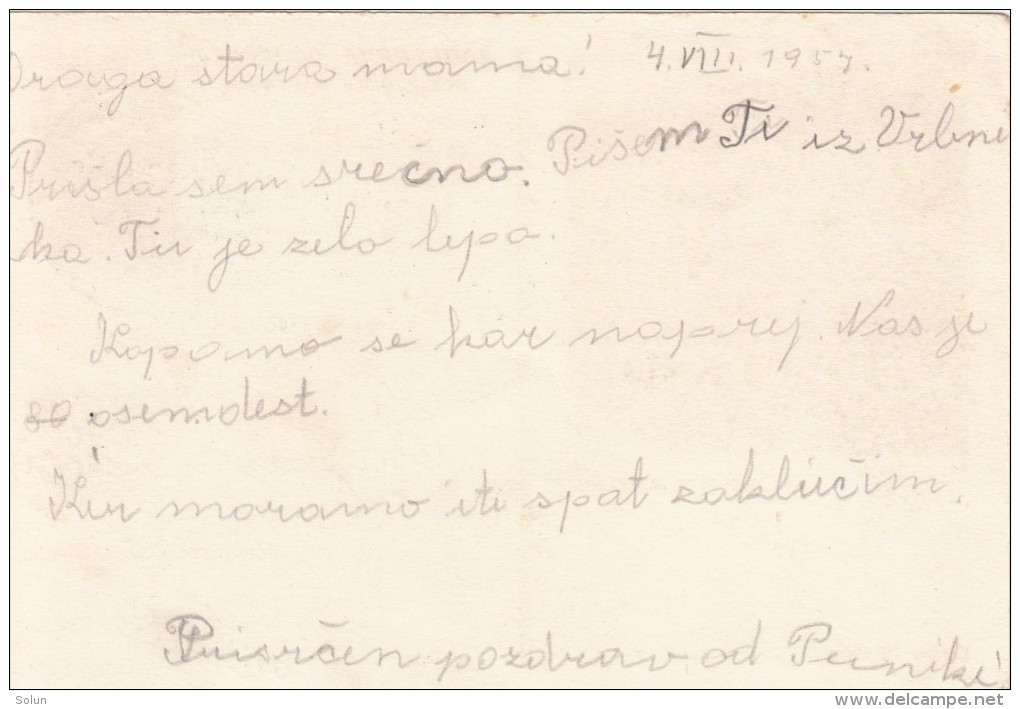 Draga stara mama! 4.VIII.1957.
Prišla sem srečno. Pišem Ti iz Vrbni
ka. Tu je zelo lepo.
Kopamo se kar naprej. Nas je
80 osemdest.
Ker moramo iti spat zaključim.
Prisrčen pozdrav od
Solun
www.delcampe.net